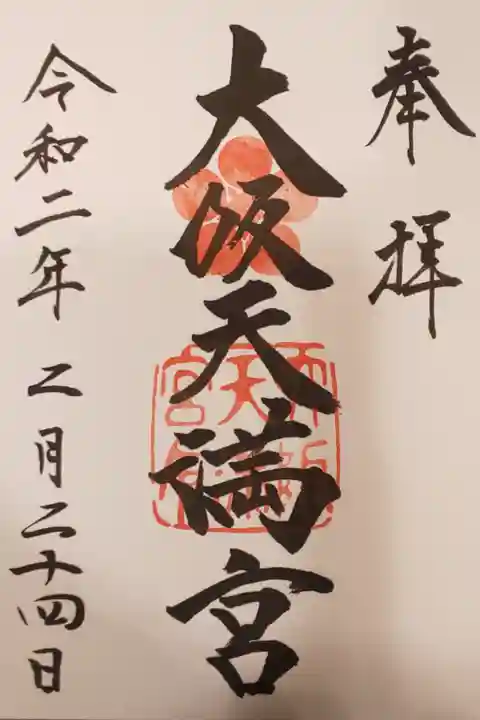 奉拝
大阪天満宮
令和二年 二月二十四日